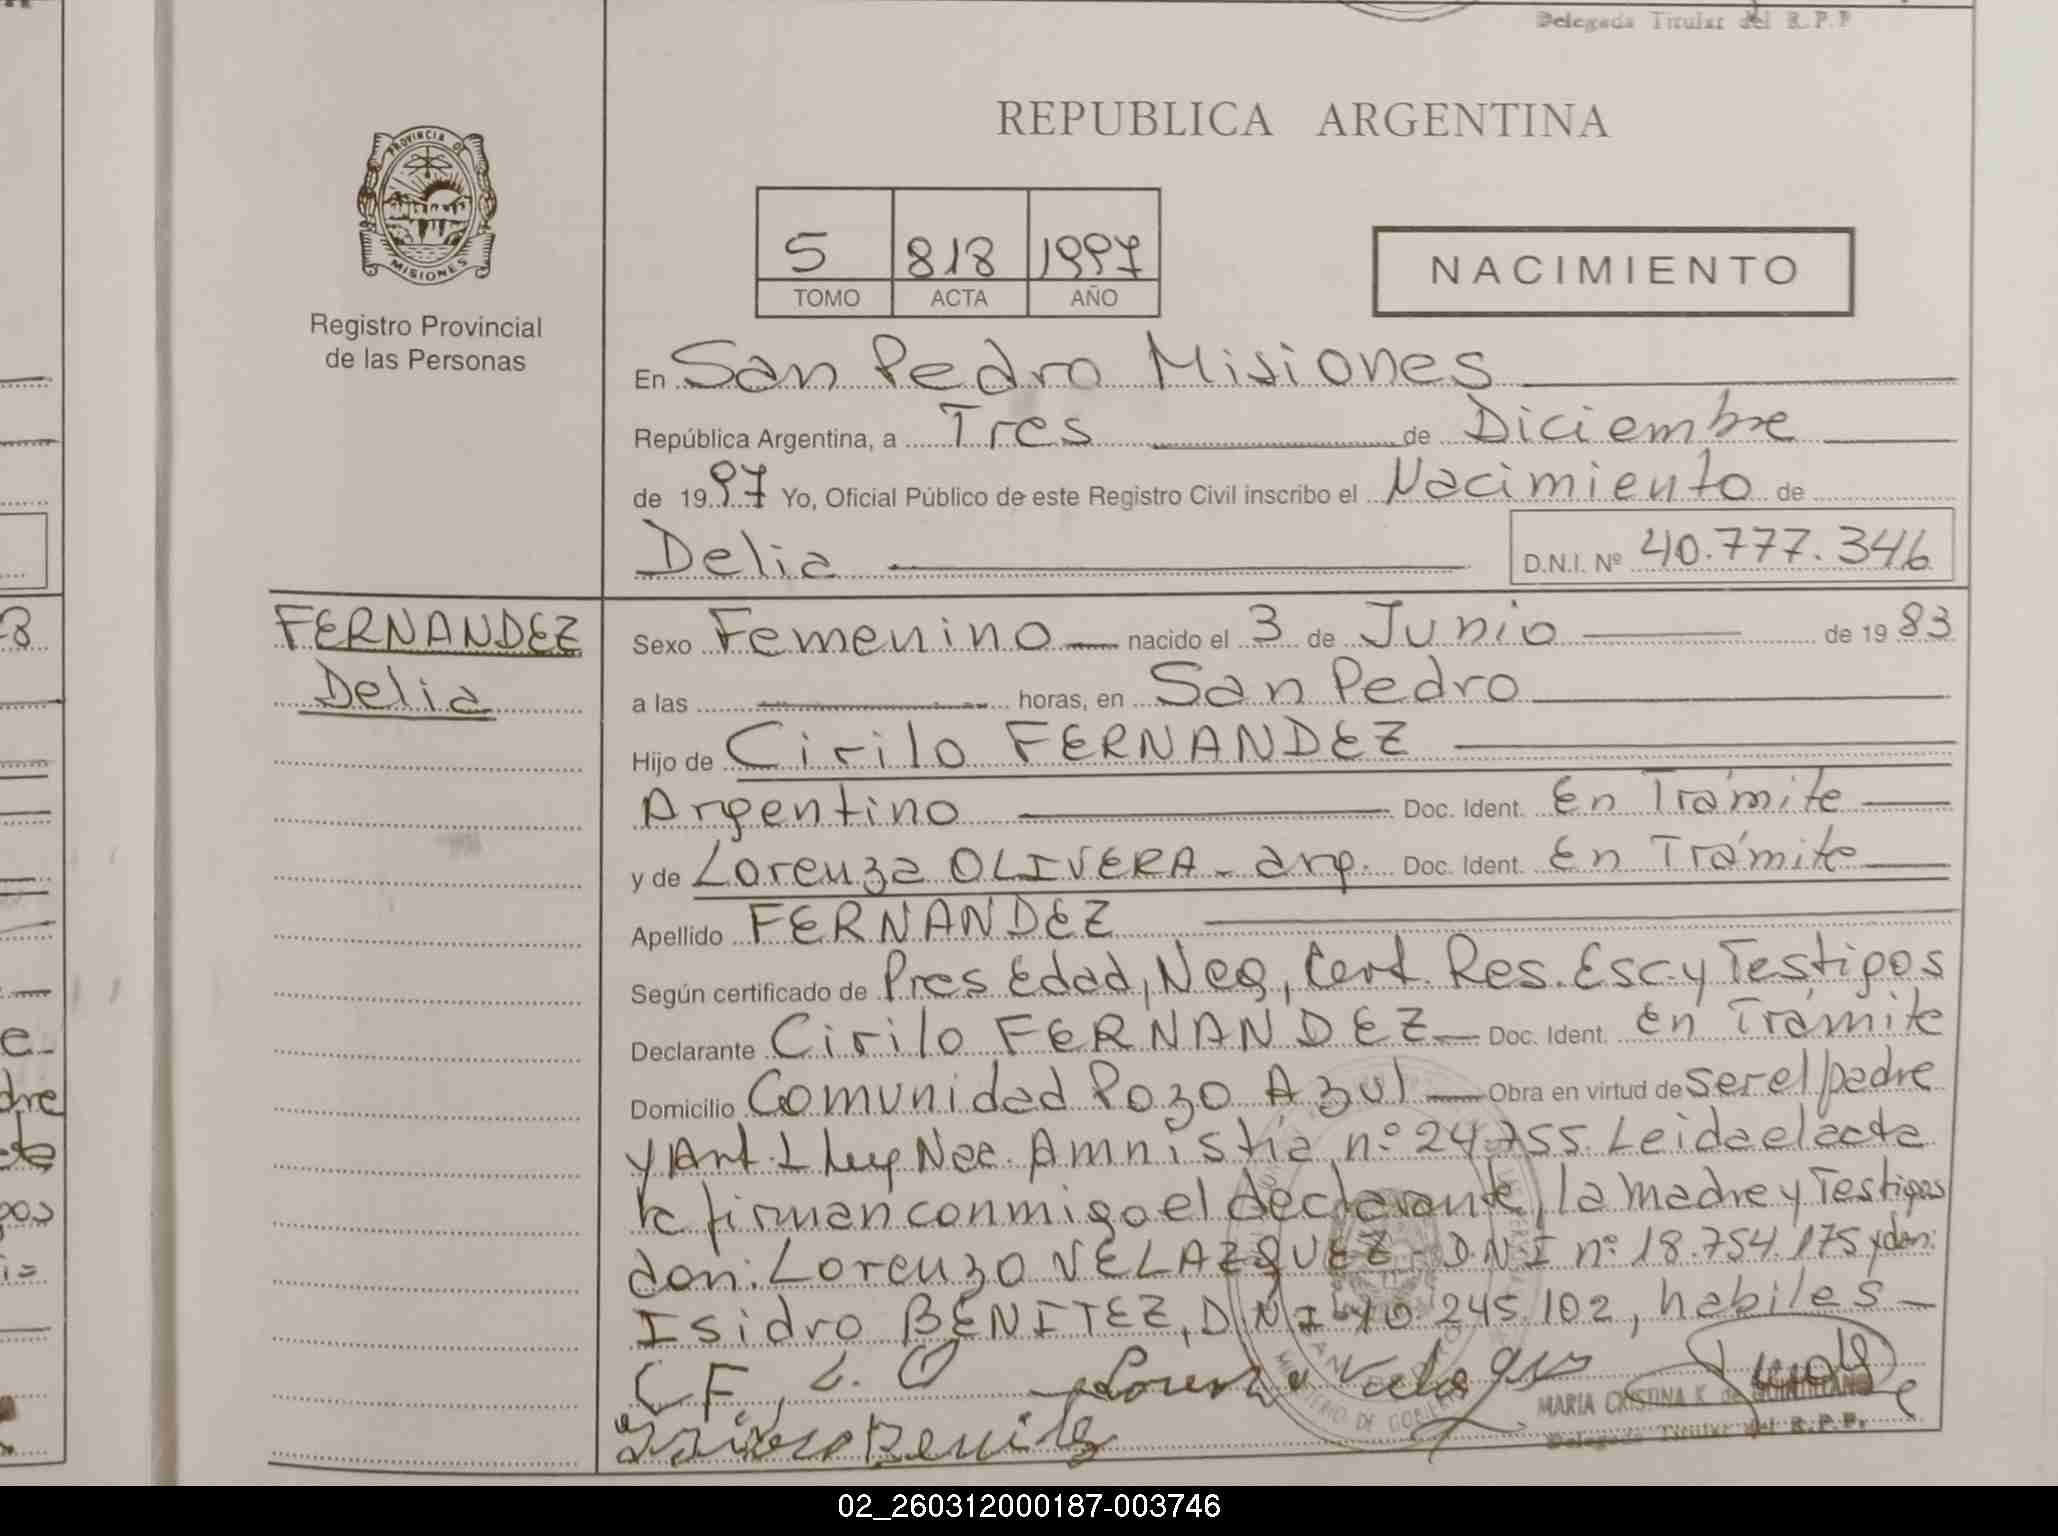 Delegada Titular del R.P.P
REPUBLICA ARGENTINA
PROVINCIA DE
MISIONES
Registro Provincial
de las Personas
5 818 1997
TOMO ACTA AÑO
NACIMIENTO
En San Pedro Misiones
República Argentina, a Tres de Diciembre
de 1997 Yo, Oficial Público de este Registro Civil inscribo el Nacimiento de
Delia
D.N.I. Nº 40.777.346
FERNANDEZ
Delia
Sexo Femenino nacido el 3 de Junio de 1983
a las horas, en San Pedro
Hijo de Cirilo FERNANDEZ
Argentino Doc. Ident. En Trámite
y de Lorenza OLIVERA - arg. Doc. Ident. En Trámite
Apellido FERNANDEZ
Según certificado de Pres Edad, Neg, Cert. Res. Esc. y Testigos
Declarante Cirilo FERNANDEZ Doc. Ident. En Trámite
Domicilio Comunidad Pozo Azul Obra en virtud de ser el padre
y Art. 1 Ley Nac. Amnistía nº 24.755. Leida el acta
la firman conmigo el declarante, la madre y Testigos
don: Lorenzo VELAZQUEZ - D.N.I nº 18.754.175 y don:
Isidro BENITEZ, DNI 40.245.102, habiles
C F, L. O Lorenzo Velazquez
MARIA CRISTINA K. de
Isidro Benitez
Delegada Titular del R.P.P.
MINISTERIO DE GOBIERNO
02_260312000187-003746